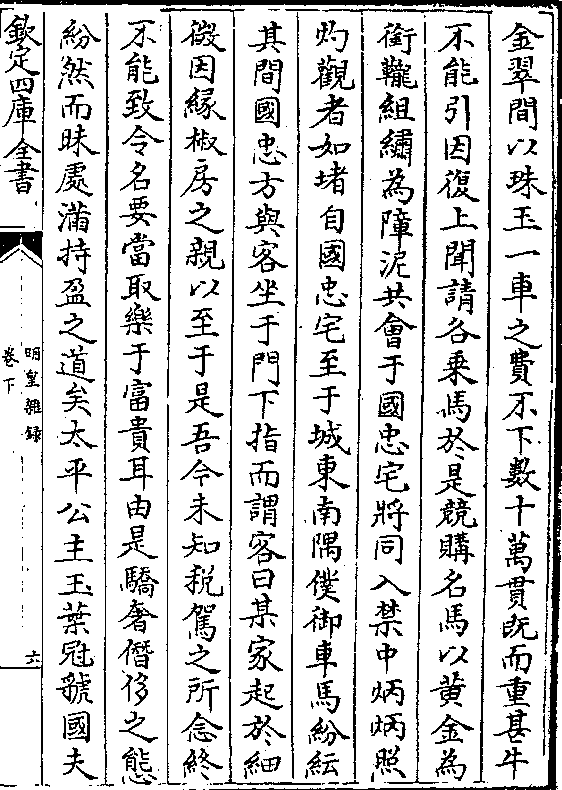 金翠間以珠玉一車之費不下數十萬貫既而重甚牛
不能引因復上聞請各乘馬於是競購名馬以黄金為
銜𩍐組繡為障泥共會于國忠宅將同入禁中炳炳照
灼觀者如堵自國忠宅至于城東南隅僕御車馬紛紜
其間國忠方與客坐于門下指而謂客曰某家起於細
微因縁椒房之親以至于是吾今未知税駕之所念終
不能致令名要當取樂于富貴耳由是驕奢僭侈之態
紛然而昧處滿持盈之道矣太平公主玉葉冠虢國夫
欽定四庫全書
明皇雜録
卷下
六